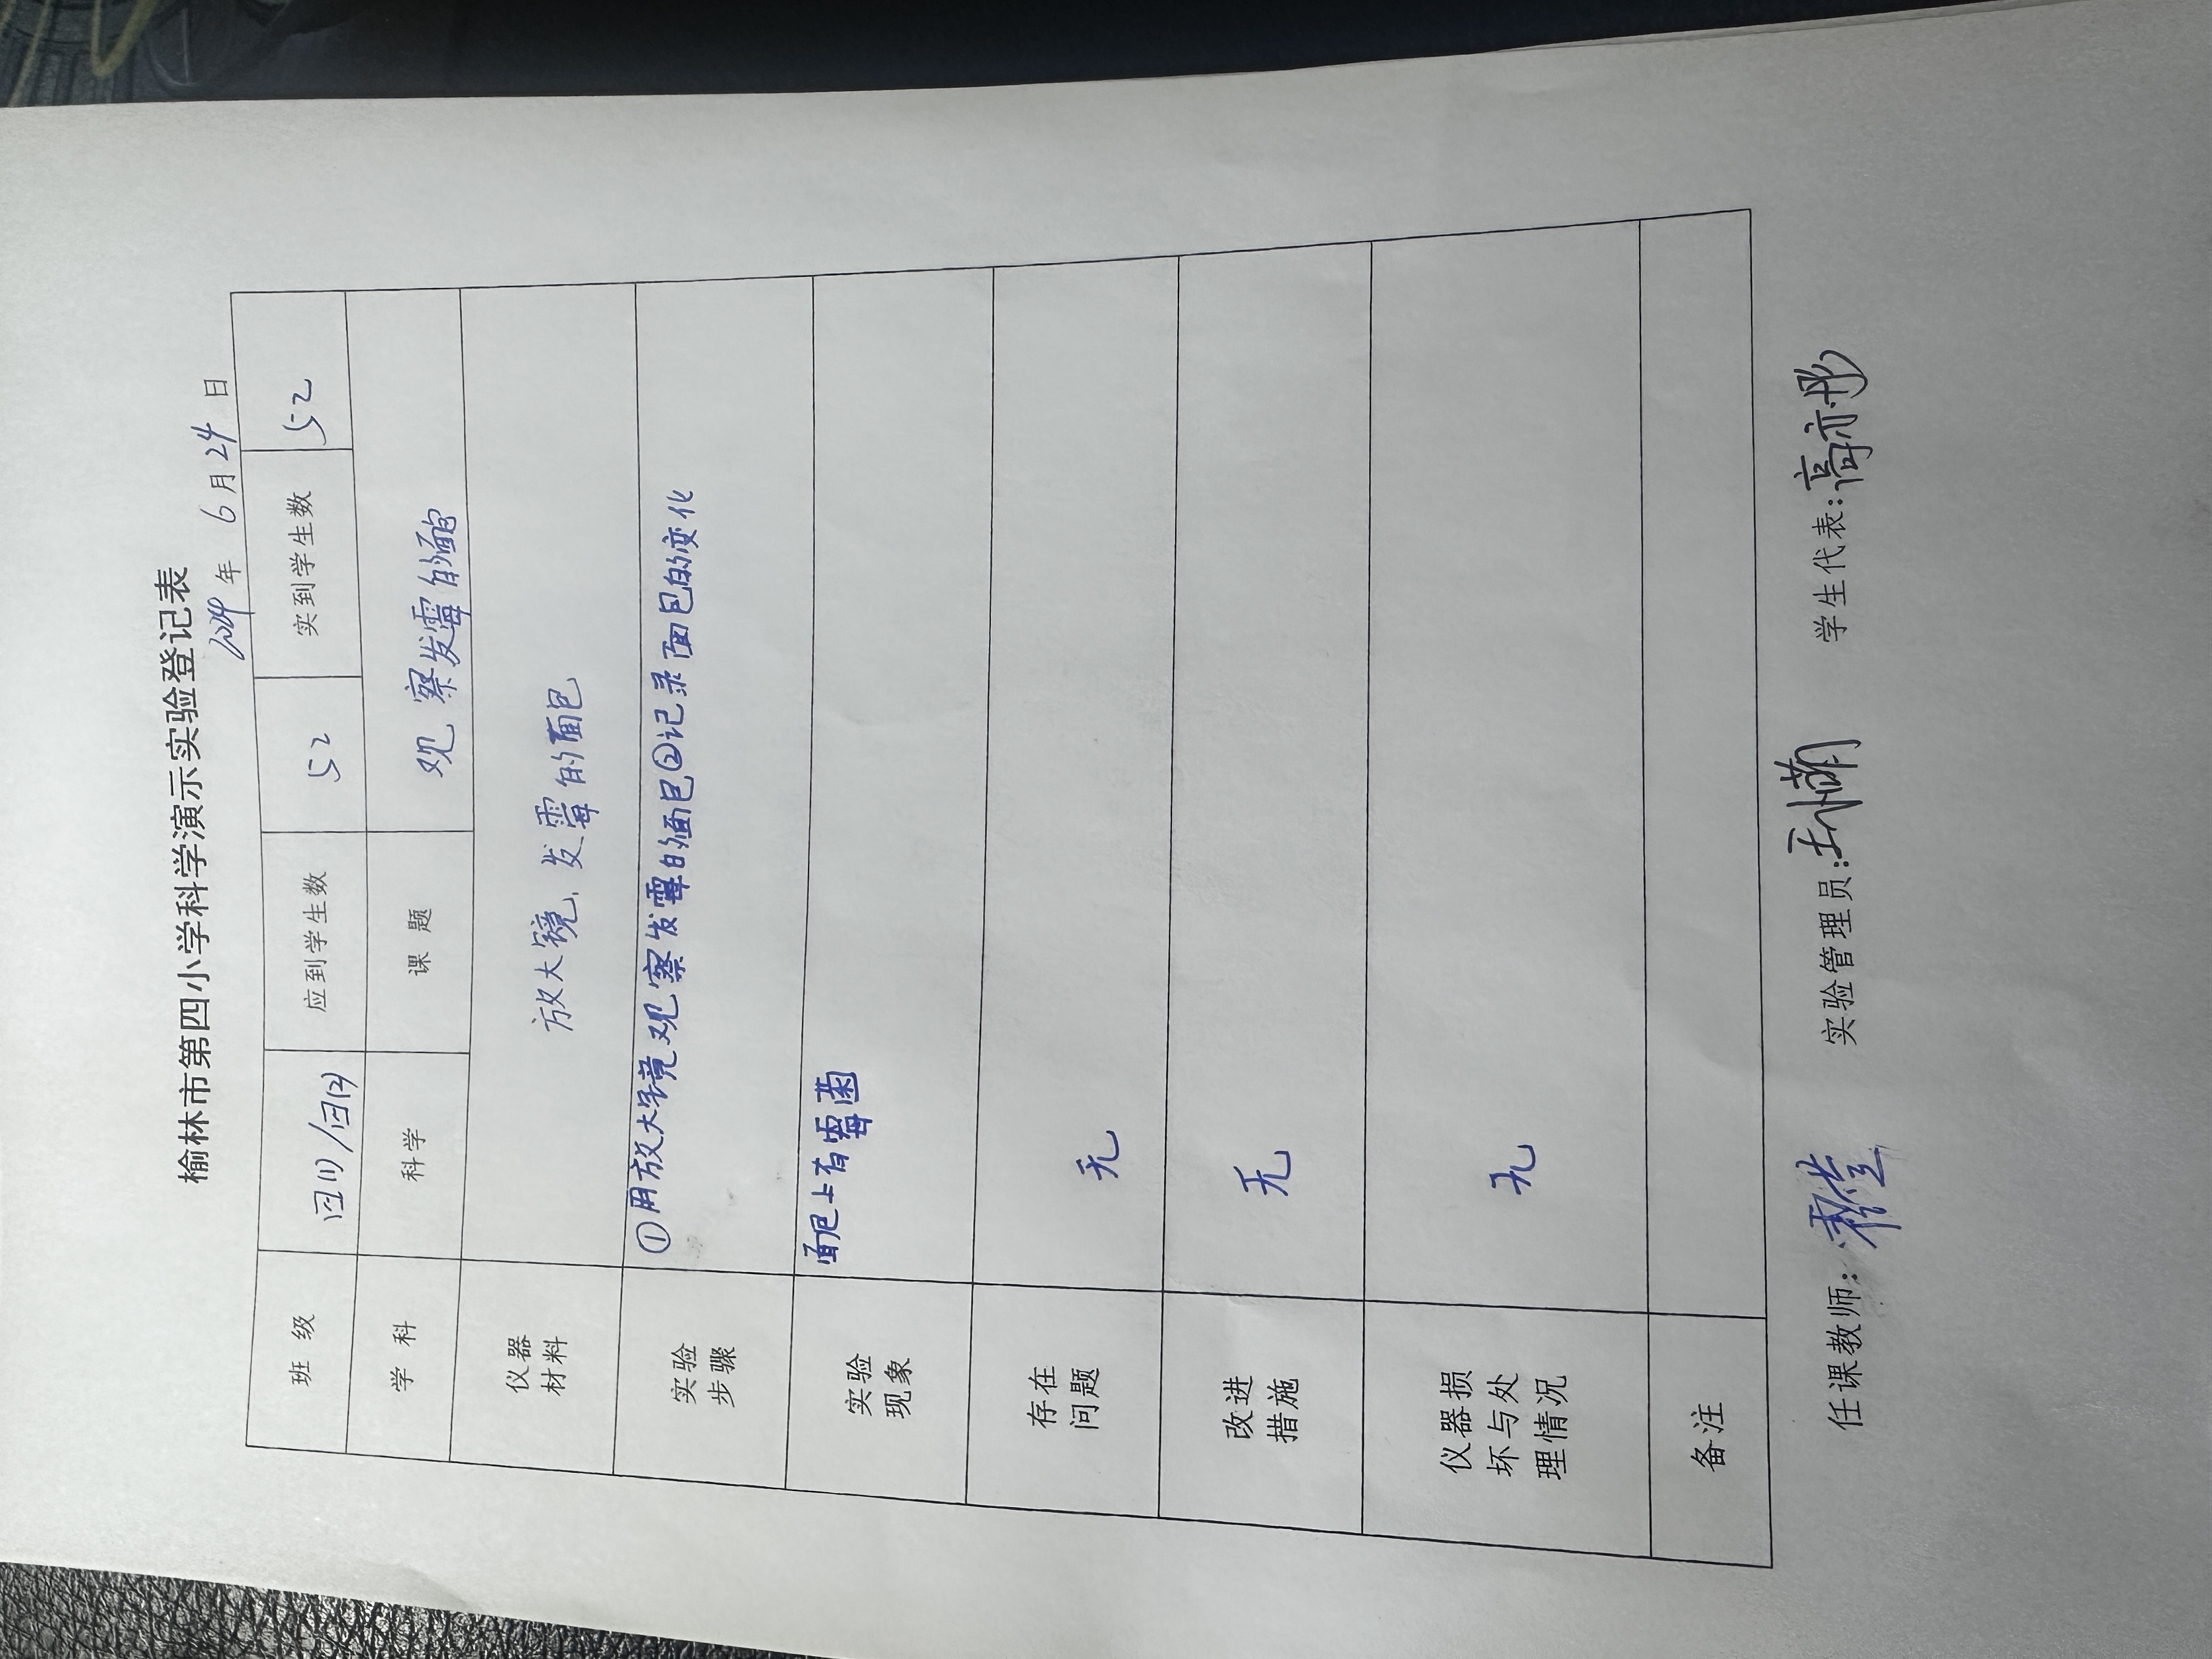 榆林市第四小学科学演示实验登记表
2024年 6月24日
班 级 四(1)/四(2) 应到学生数 52 实到学生数 52
学 科 科学 课 题 观察发霉的面包
仪器
材料 放大镜、发霉的面包
实验
步骤 ①用放大镜观察发霉的面包②记录面包的变化
实验
现象 面包上有霉菌
存在
问题 无
改进
措施 无
仪器损
坏与处
理情况 无
备注
任课教师: 实验管理员: 学生代表:高亦彤